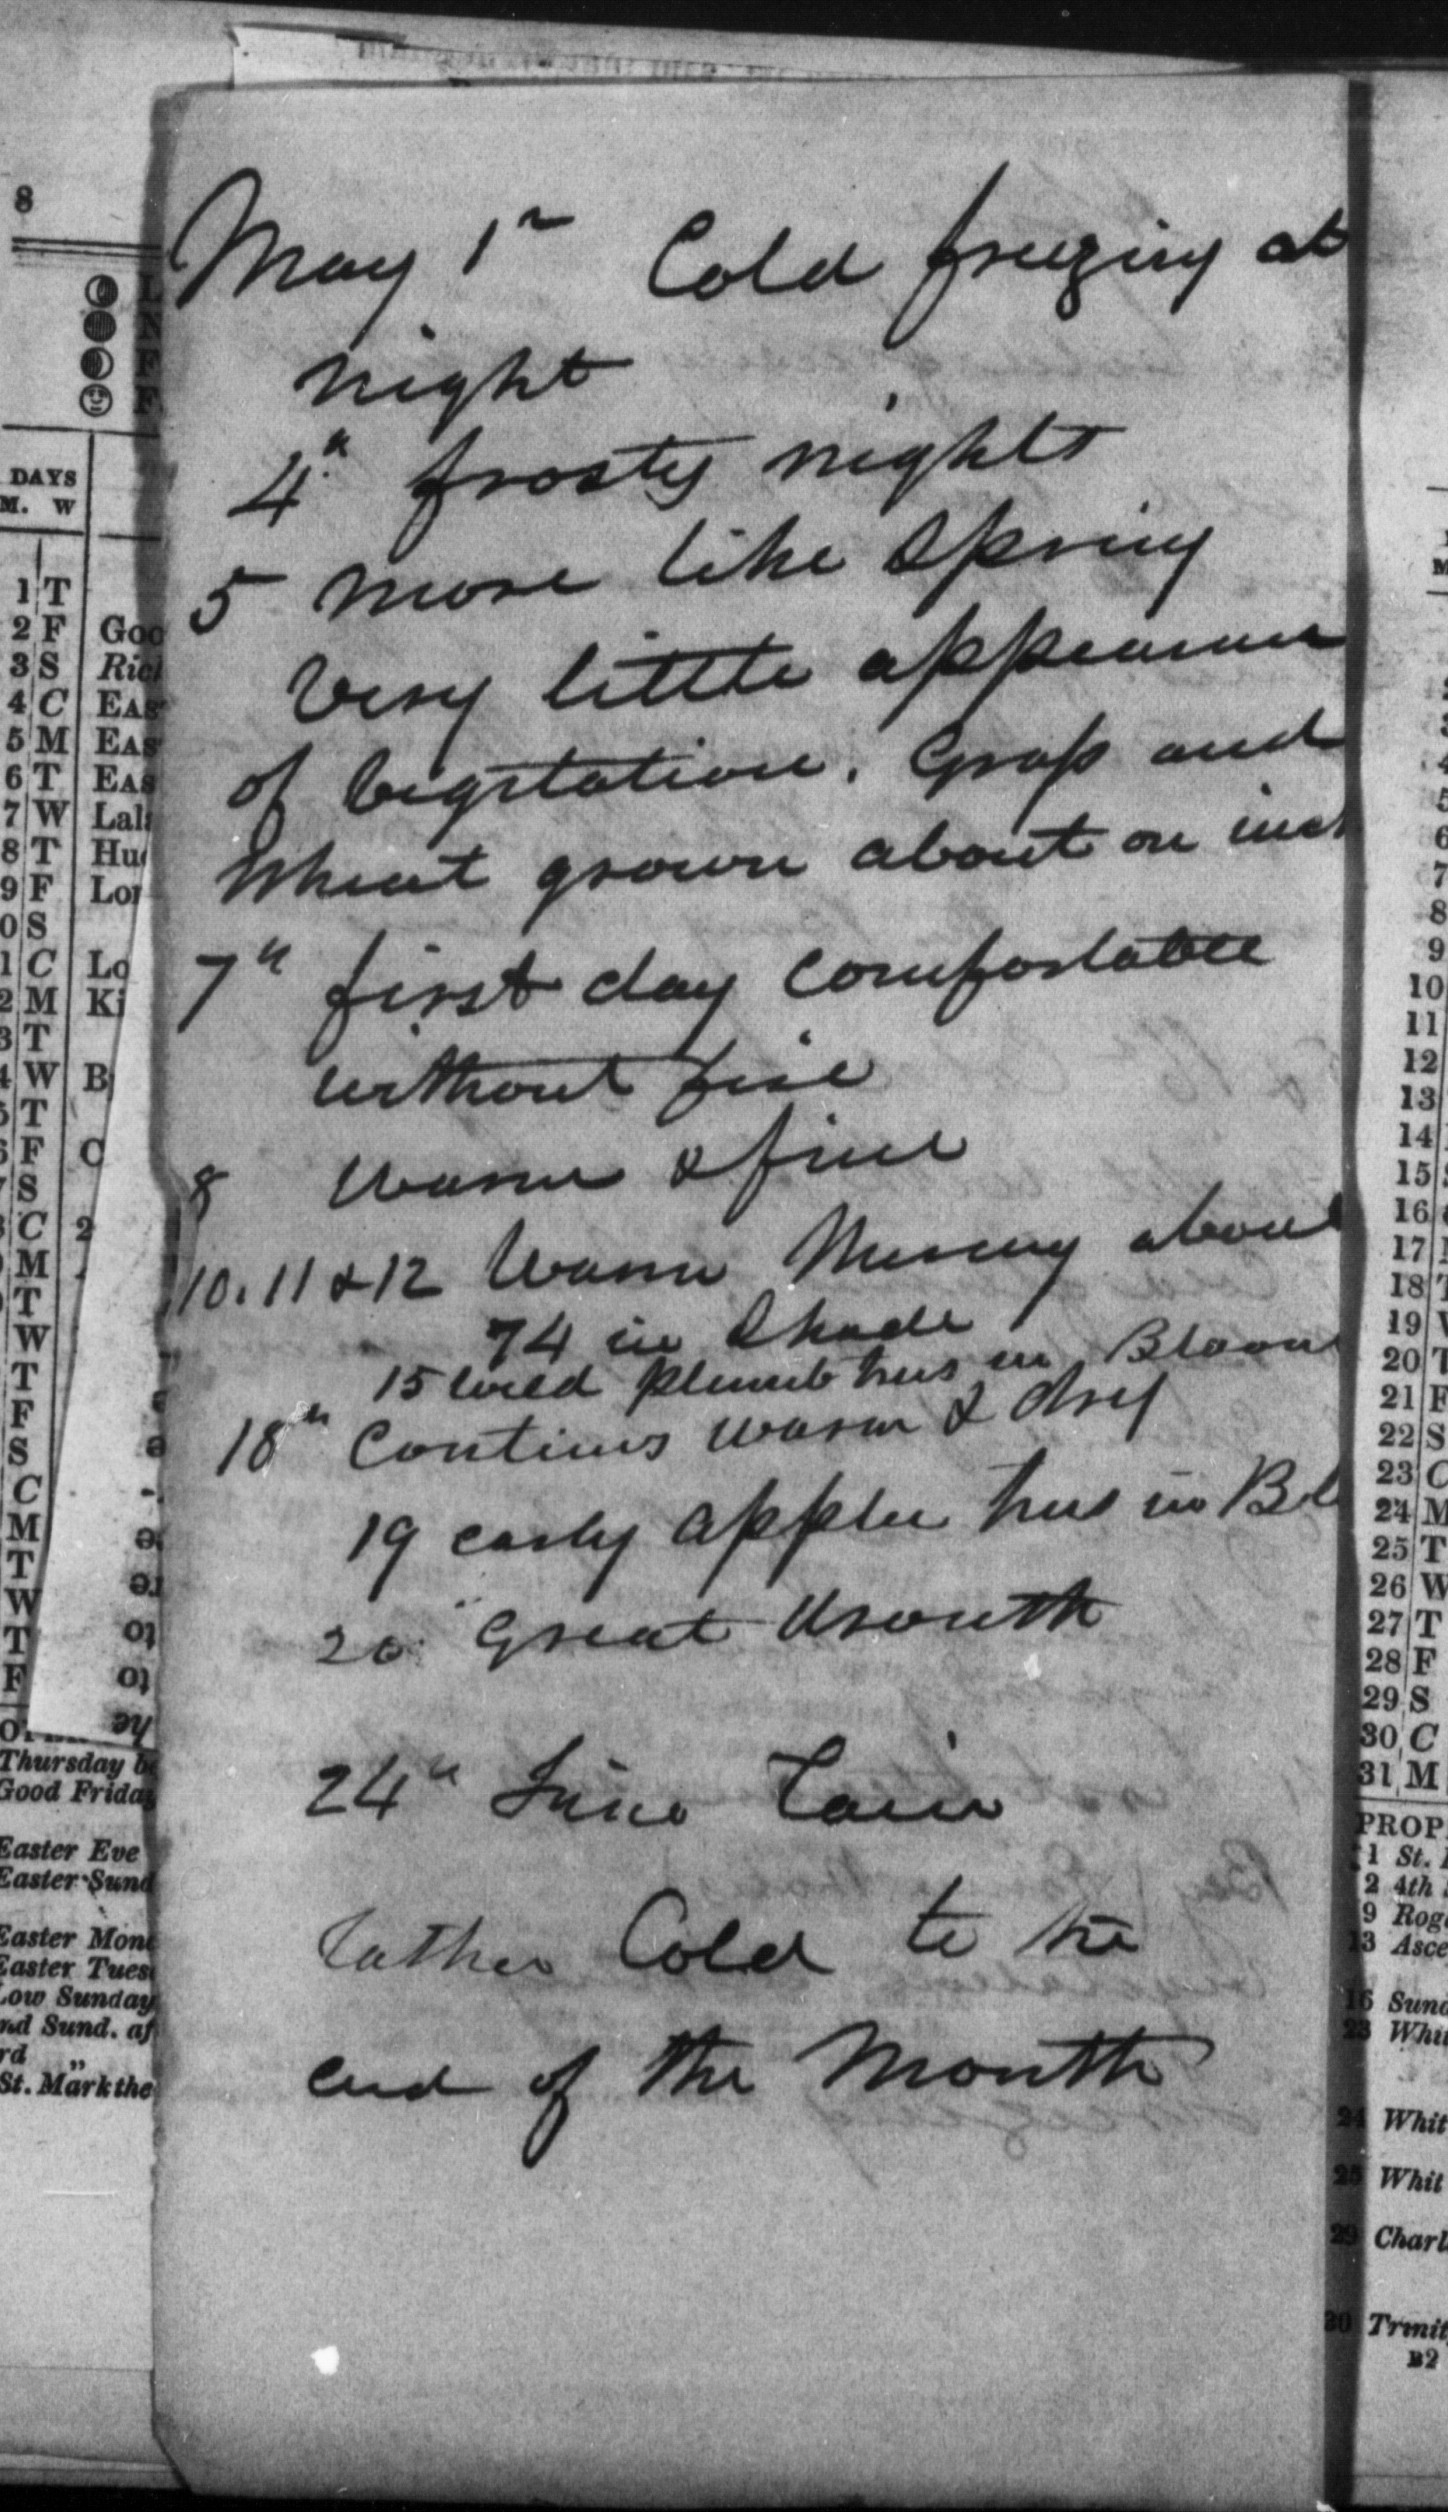 May 1st Cold freezing at
night
4th frosty nights
5 more like Spring
Very little appearance
of Vegitation. Grass and
Wheat grown about on inch
7th first day comfortable
without fire
8 Warm & fine
10. 11 & 12 Warm Mercury about
74 in Shade
15 wild plumb trees in Bloom
18th Continues warm & dry
19 early apple trees in Bl
20 Great drouth
24th Fine Rain
rather Cold to the
end of the Month
8
DAYS
M. W
1 T
2 F Goo
3 S Ric
4 C Eas
5 M Eas
6 T Eas
7 W Lal
8 T Hu
9 F Lo
0 S
1 C Lo
2 M Ki
3 T
4 W B
5 T
6 F C
S
C 2
M
T
W
T
F
S
C
M
T
W
T
F
Thursday b
Good Friday
Easter Eve
Easter Sund
Easter Mon
Easter Tues
Low Sunday
nd Sund. af
rd "
St. Mark the
5
6
7
8
9
10
11
12
13
14
15
16
17
18 T
19
20 T
21 F
22 S
23 C
24 M
25 T
26 W
27 T
28 F
29 S
30 C
31 M
PROP
1 St.
2 4th
9 Rog
13 Asce
16 Sund
23 Whit
24 Whit
25 Whit
29 Charl
30 Trinit
B2